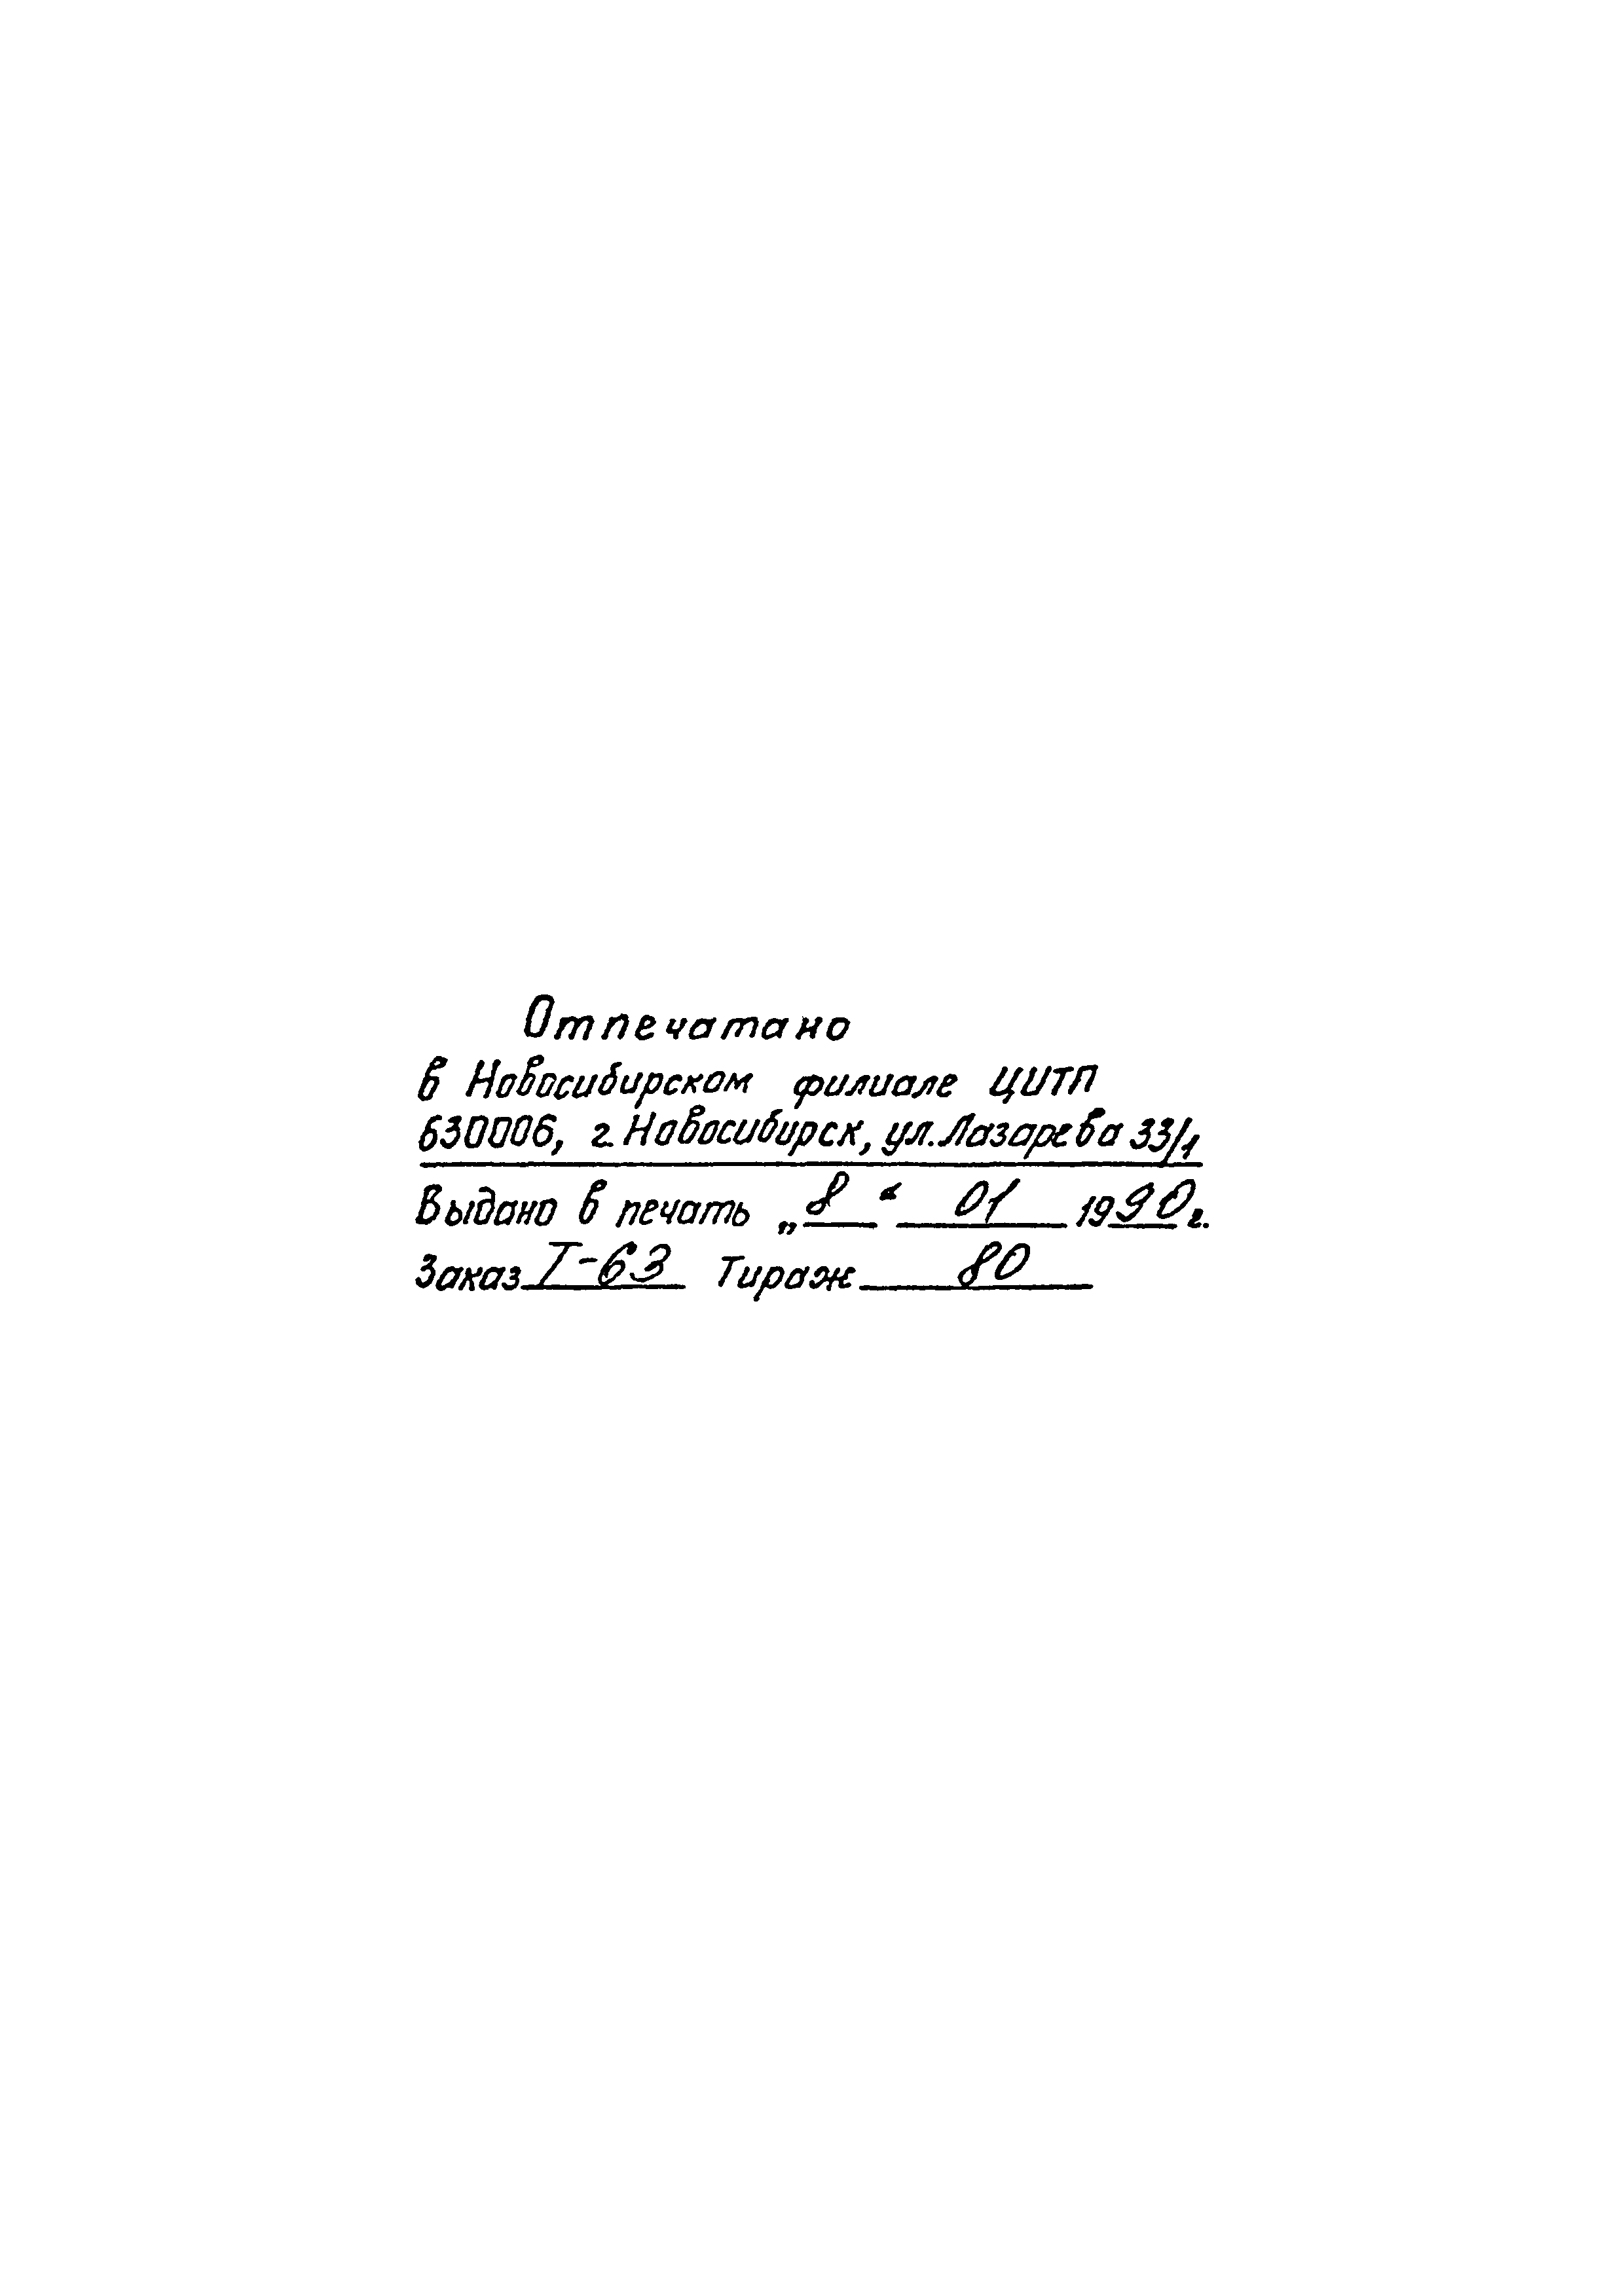 Отпечатано
в Новосибирском филиале ЦИТП
630006, г. Новосибирск, ул. Лазарева 33/1
Выдано в печать „8“ 01 1990 г.
Заказ Т-63 Тираж 80